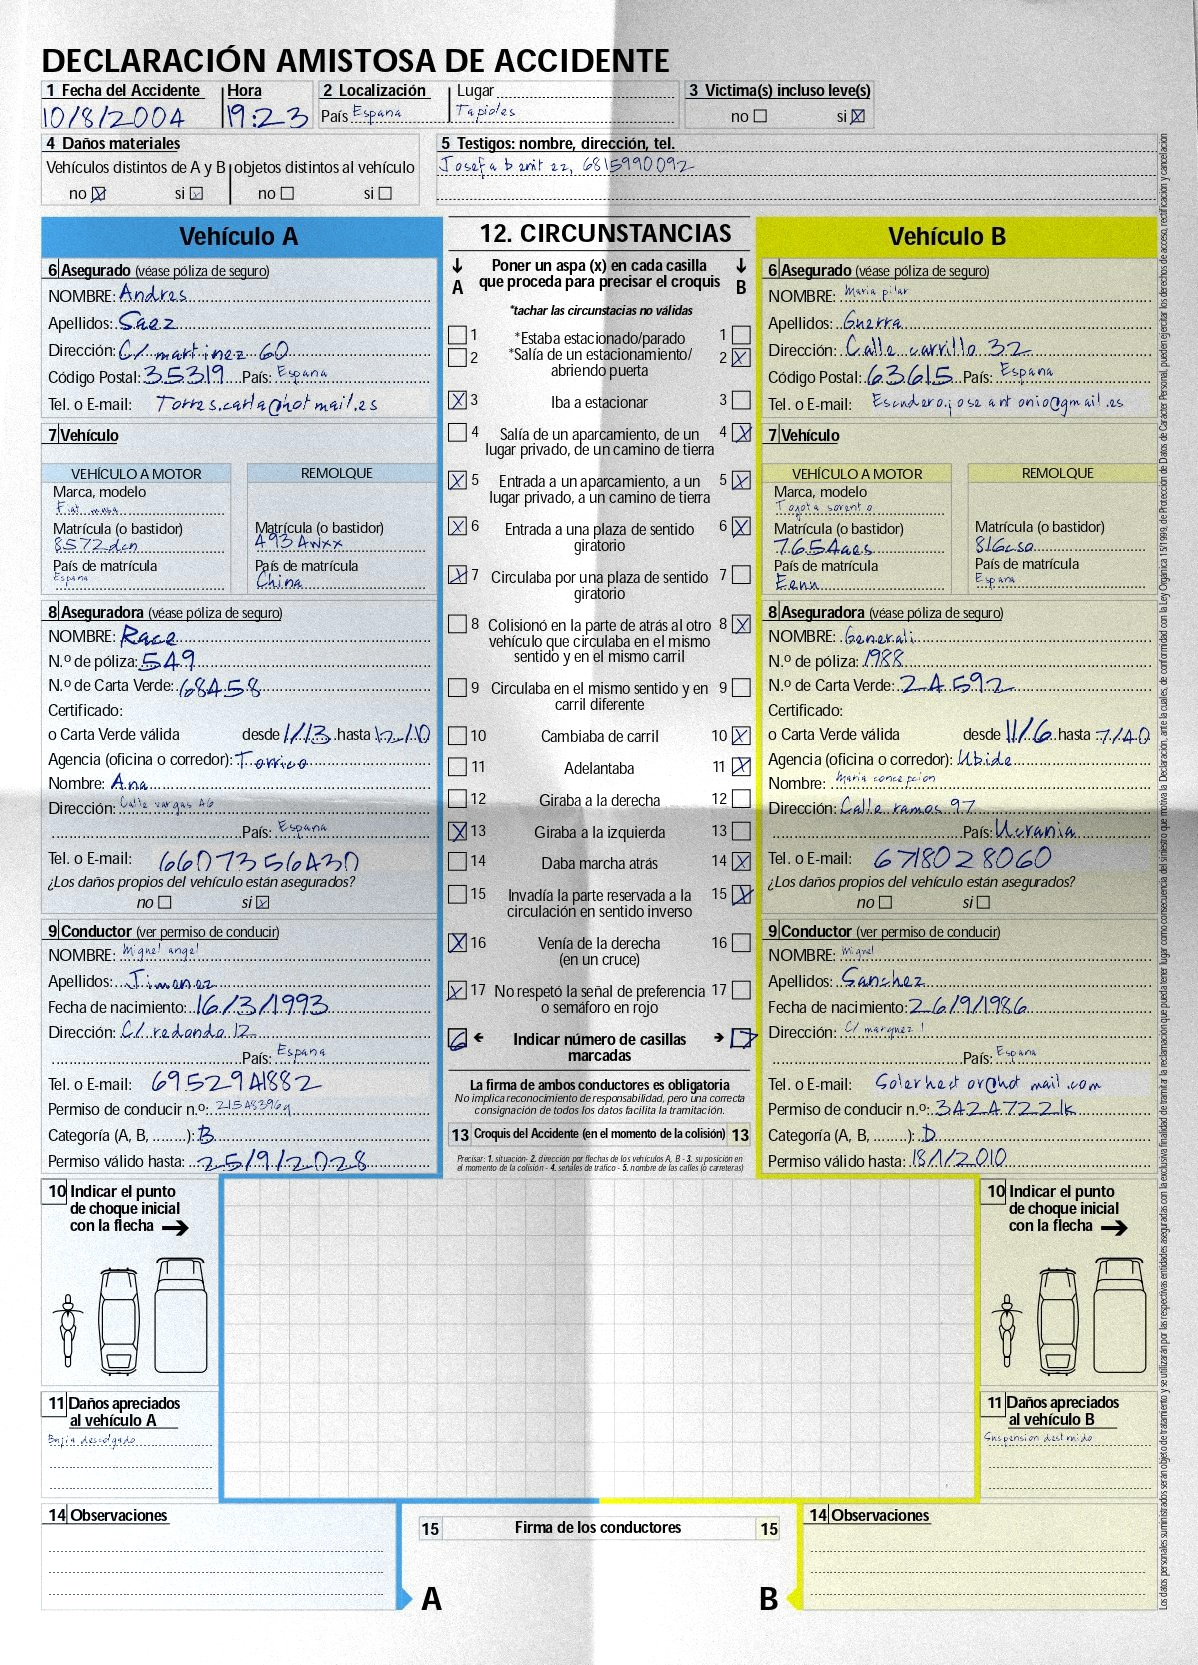 DECLARACIÓN AMISTOSA DE ACCIDENTE
1 Fecha del Accidente
10/8/2004
Hora
19:23
2 Localización
País España
Lugar
Tapioles
3 Victima(s) incluso leve(s)
no si
4 Daños materiales
Vehículos distintos de A y B objetos distintos al vehículo
no si no si
5 Testigos: nombre, dirección, tel.
Josefa benitez, 6815990092
Vehículo A
6 Asegurado (véase póliza de seguro)
NOMBRE: Andres
Apellidos: Saez
Dirección: C/ martinez 60
Código Postal: 35319 País: España
Tel. o E-mail: Torres.carla@hotmail.es
7 Vehículo
VEHÍCULO A MOTOR
Marca, modelo
Fiat
Matrícula (o bastidor)
8572dcn
País de matrícula
España
REMOLQUE
Matrícula (o bastidor)
493AWxx
País de matrícula
China
8 Aseguradora (véase póliza de seguro)
NOMBRE: Race
N.º de póliza: 549
N.º de Carta Verde: 68458
Certificado:
o Carta Verde válida desde 1/13 hasta 12/10
Agencia (oficina o corredor): Torrico
Nombre: Ana
Dirección: Calle vargas 46
País: España
Tel. o E-mail: 6607356430
¿Los daños propios del vehículo están asegurados?
no si
9 Conductor (ver permiso de conducir)
NOMBRE: Miguel angel
Apellidos: Jimenez
Fecha de nacimiento: 16/3/1993
Dirección: C/ redondo 12
País: España
Tel. o E-mail: 6952941882
Permiso de conducir n.º: 21548396q
Categoría (A, B, ........): B
Permiso válido hasta: 25/9/2028
12. CIRCUNSTANCIAS
A
Poner un aspa (x) en cada casilla
que proceda para precisar el croquis
B
*tachar las circunstacias no válidas
1 *Estaba estacionado/parado 1
2 *Salía de un estacionamiento/ 2
abriendo puerta
3 Iba a estacionar 3
4 Salía de un aparcamiento, de un 4
lugar privado, de un camino de tierra
5 Entrada a un aparcamiento, a un 5
lugar privado, a un camino de tierra
6 Entrada a una plaza de sentido 6
giratorio
7 Circulaba por una plaza de sentido 7
giratorio
8 Colisionó en la parte de atrás al otro 8
vehículo que circulaba en el mismo
sentido y en el mismo carril
9 Circulaba en el mismo sentido y en 9
carril diferente
10 Cambiaba de carril 10
11 Adelantaba 11
12 Giraba a la derecha 12
13 Giraba a la izquierda 13
14 Daba marcha atrás 14
15 Invadía la parte reservada a la 15
circulación en sentido inverso
16 Venía de la derecha 16
(en un cruce)
17 No respetó la señal de preferencia 17
o semáforo en rojo
6 Indicar número de casillas 7
marcadas
La firma de ambos conductores es obligatoria
No implica reconocimiento de responsabilidad, pero una correcta
consignación de todos los datos facilita la tramitación.
13 Croquis del Accidente (en el momento de la colisión) 13
Precisar: 1. situación- 2. dirección por flechas de los vehículos A, B - 3. su posición en
el momento de la colisión - 4. señales de tráfico - 5. nombre de las calles (o carreteras)
Vehículo B
6 Asegurado (véase póliza de seguro)
NOMBRE: Maria pilar
Apellidos: Guerra
Dirección: Calle carrillo 32
Código Postal: 63615 País: España
Tel. o E-mail: Escudero.jose antonio@gmail.es
7 Vehículo
VEHÍCULO A MOTOR
Marca, modelo
Toyota sorento
Matrícula (o bastidor)
7654aes
País de matrícula
Eenn
REMOLQUE
Matrícula (o bastidor)
816cso
País de matrícula
España
8 Aseguradora (véase póliza de seguro)
NOMBRE: Generali
N.º de póliza: 1988
N.º de Carta Verde: 24592
Certificado:
o Carta Verde válida desde 11/6 hasta 7/40
Agencia (oficina o corredor): Ubide
Nombre: Maria concepcion
Dirección: Calle ramos 97
País: Ucrania
Tel. o E-mail: 6718028060
¿Los daños propios del vehículo están asegurados?
no si
9 Conductor (ver permiso de conducir)
NOMBRE: Miguel
Apellidos: Sanchez
Fecha de nacimiento: 26/9/1986
Dirección: C/ marquez 1
País: España
Tel. o E-mail: Solerhector@hotmail.com
Permiso de conducir n.º: 34247221k
Categoría (A, B, ........): D
Permiso válido hasta: 18/1/2010
10 Indicar el punto
de choque inicial
con la flecha
11 Daños apreciados
al vehículo A
Bujia descolgado
10 Indicar el punto
de choque inicial
con la flecha
11 Daños apreciados
al vehículo B
Suspension destruido
14 Observaciones
15 Firma de los conductores 15
A B
14 Observaciones
Los datos personales suministrados serán objeto de tratamiento y se utilizarán por las respectivas entidades aseguradas con la exclusiva finalidad de tramitar la reclamación que pueda tener lugar como consecuencia del siniestro que motiva la Declaración, ante la cuales, de conformidad con la Ley Orgánica 15/1999, de Protección de Datos de Carácter Personal, pueden ejercitar los derechos de acceso, rectificación y cancelación